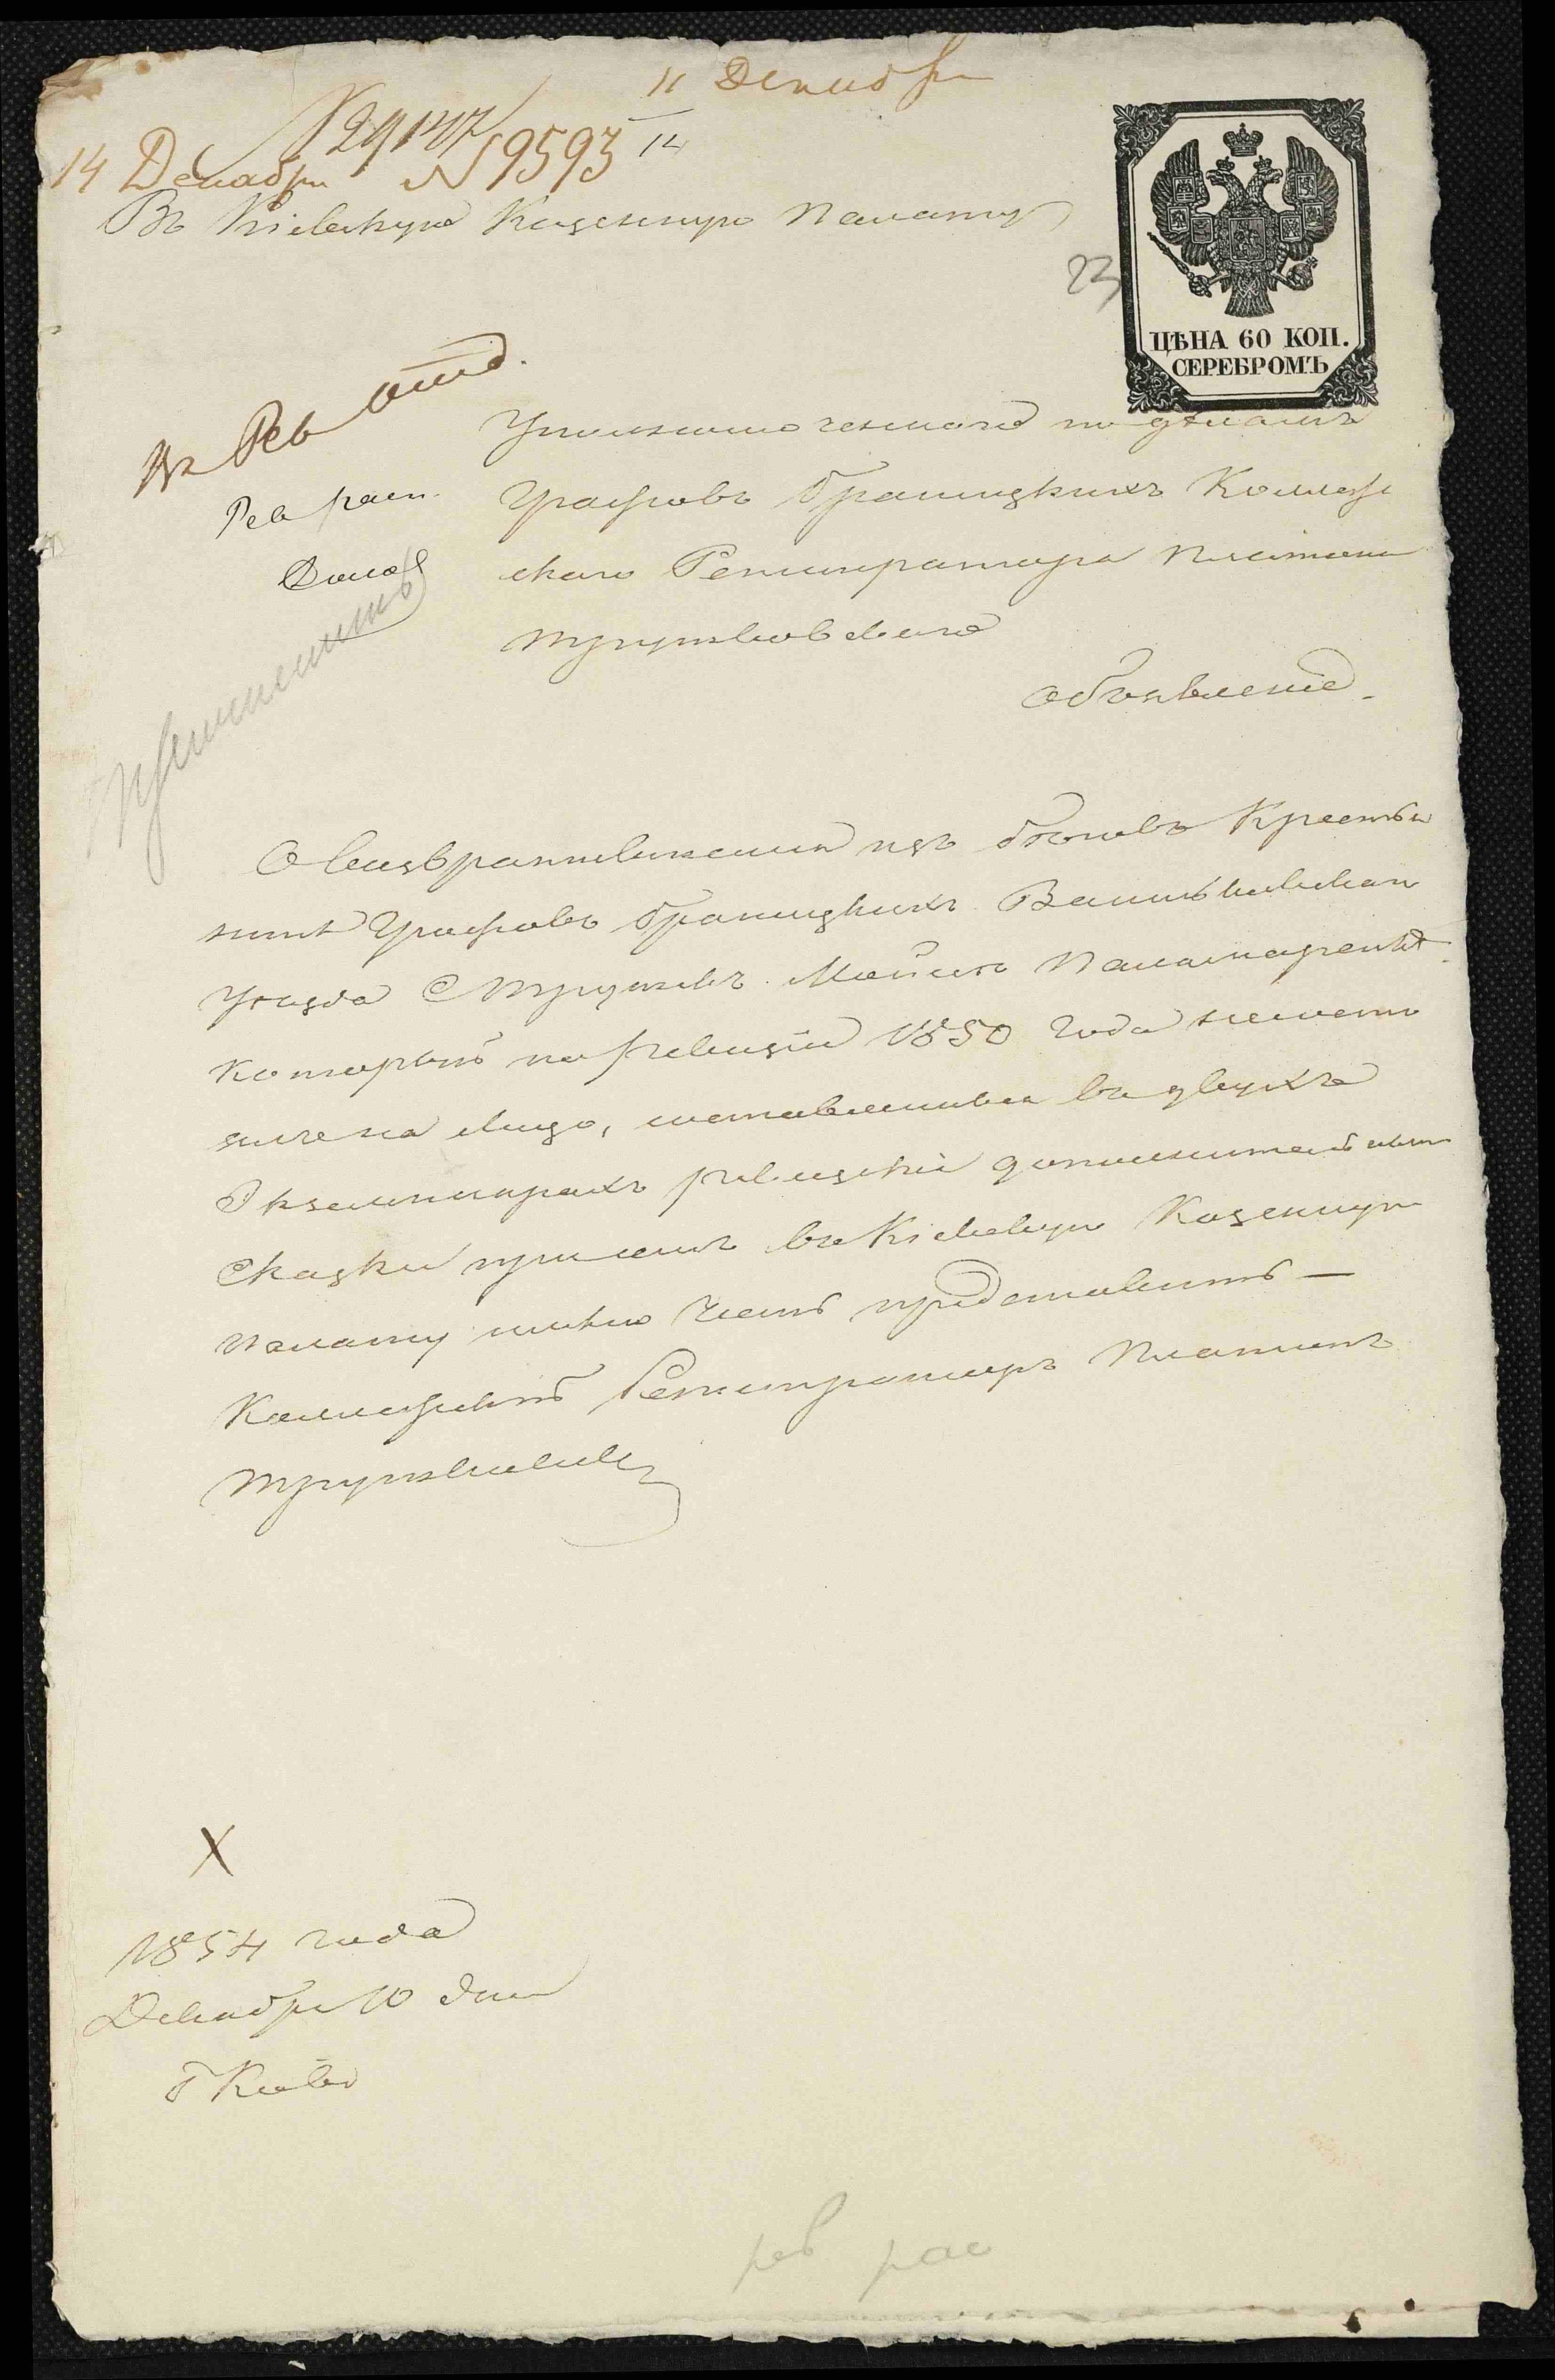 11 Декабря
14 Декабря N 9593 14
Въ Кіевскую Казенную Палату
23
ЦѢНА 60 КОП.
СЕРЕБРОМЪ
Въ Рев отд.
Рев расп.
Уполномоченнаго по дѣламъ
Графовъ Браницкихъ Коллеж
скаго Регистратора Платона
Трушковскаго
Объявленіе
О возвратившемся изъ бѣговъ Крестья
нинѣ Графовъ Браницкихъ Васильковскаго
уѣзда С Трушекъ Паламаренкѣ
который по ревизіи 1850 года
сказку, составленныя въ двухъ
Экземплярахъ ревизскія дополнительныя
Сказки при семъ въ Кіевскую Казенную
палату имѣю честь представить —
Коллежскій Регистраторъ Платонъ
Трушковскій
1854 года
Декабря 10 дня
Г Кіевъ
рев рас